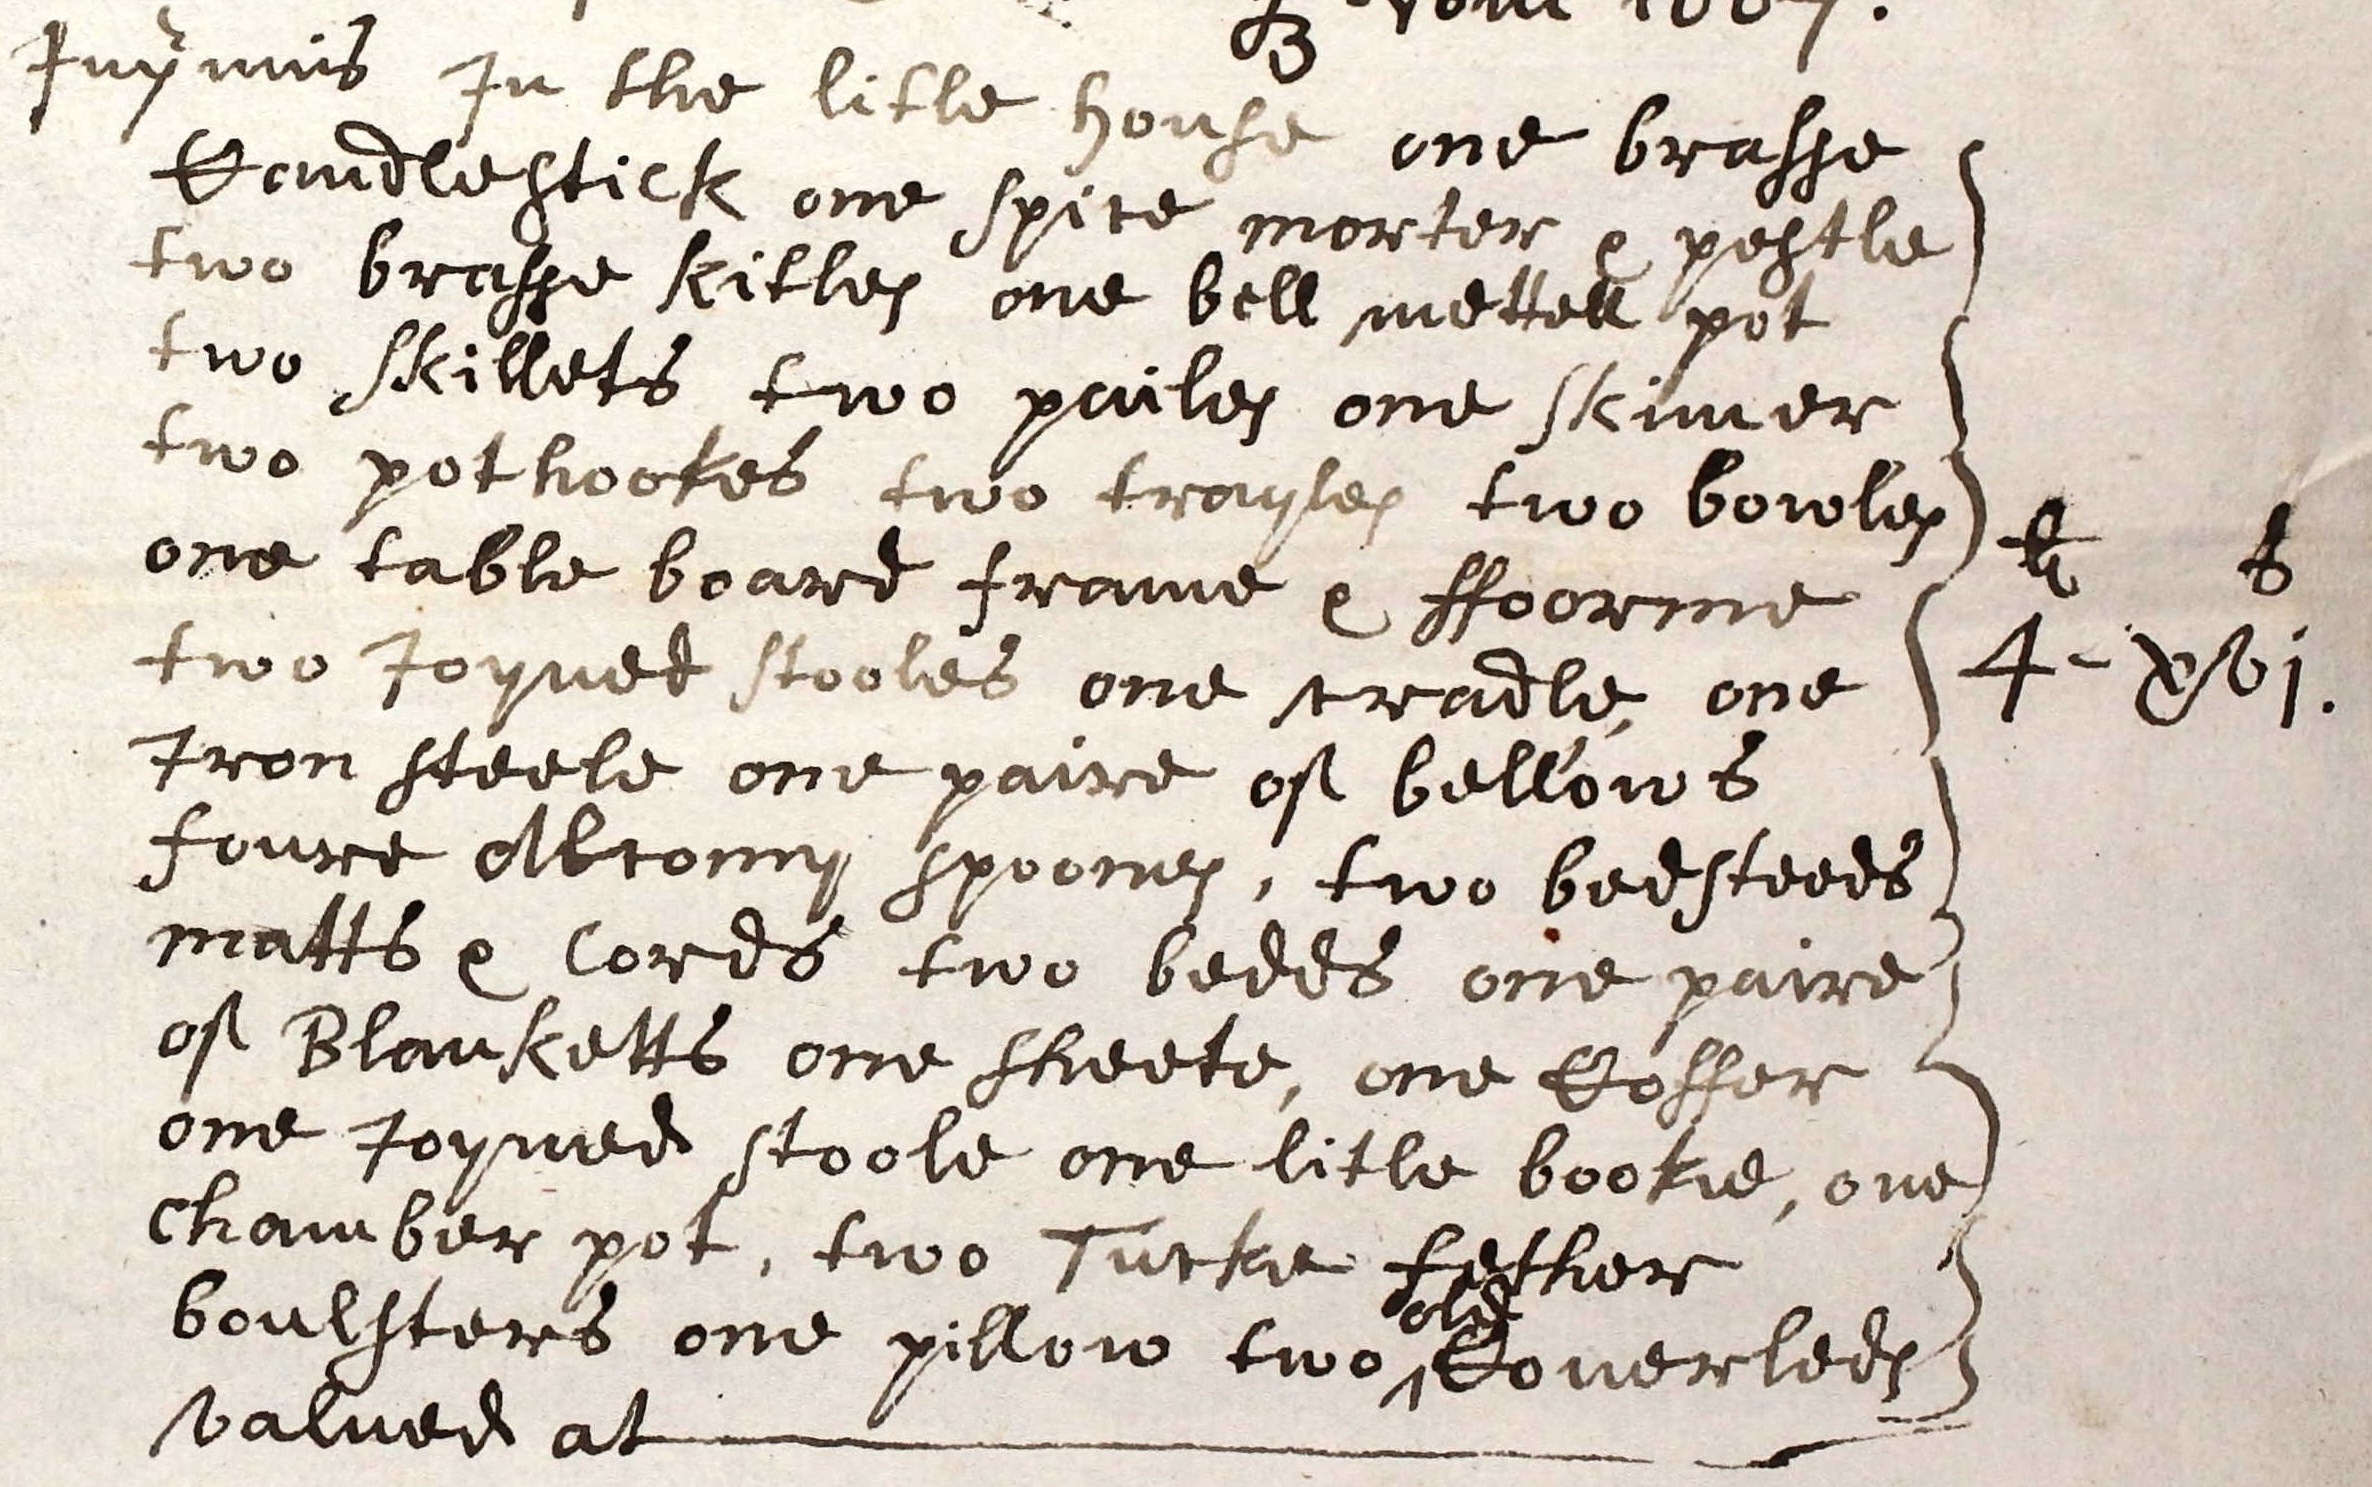 1667.
Inprimis In the litle house one brasse
Candlestick one spice morter & pestle
two brasse kitles one bell mettell pot
two skillets two pailes one skimer
two pothookes two trayles two bowles
one table board frame & fforme
two Joyned stooles one cradle, one
Iron steele one paire of bellows
foure Alcomy spoones, two bedsteeds
matts & Cords two bedds one paire
of Blanketts one sheete, one Coffer
one Joyned stoole one litle booke, one
Chamber pot, two Tucke fether
boulsters one pillow two old Couerleds
valued at
li s
4 - xvj.